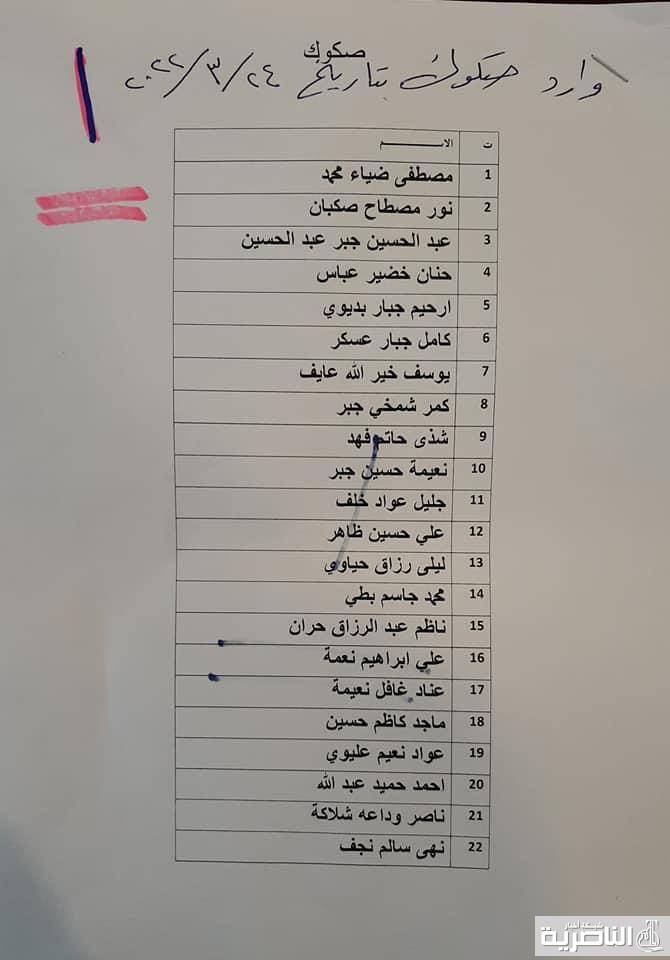 صكوك
وارد صكوك بتاريخ ٢٤/٣/٢٠٢٢
ت الاســـــــم
1 مصطفى ضياء محمد
2 نور مصطاح صكبان
3 عبد الحسين جبر عبد الحسين
4 حنان خضير عباس
5 ارحيم جبار بديوي
6 كامل جبار عسكر
7 يوسف خير الله عايف
8 كمر شمخي جبر
9 شذى حاتم فهد
10 نعيمة حسين جبر
11 جليل عواد خلف
12 علي حسين ظاهر
13 ليلى رزاق حياوي
14 محمد جاسم بطي
15 ناظم عبد الرزاق حران
16 علي ابراهيم نعمة
17 عناد غافل نعيمة
18 ماجد كاظم حسين
19 عواد نعيم عليوي
20 احمد حميد عبد الله
21 ناصر وداعه شلاكة
22 نهى سالم نجف
شبكة اخبار
الناصرية